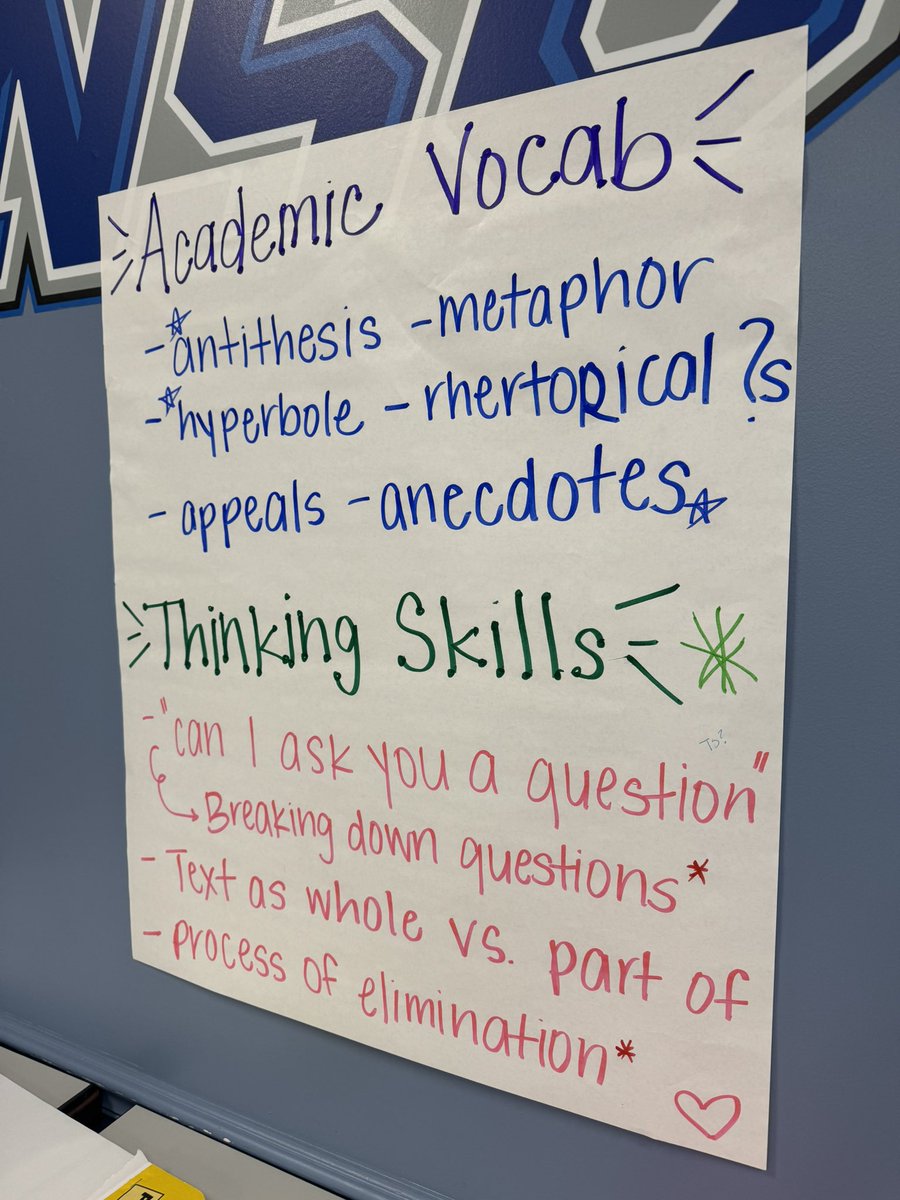 Academic Vocab
- antithesis - metaphor
- hyperbole - rhertorical ?s
- appeals - anecdotes
Thinking Skills
- "can I ask you a question"
Breaking down questions*
- Text as whole vs. part of
- process of elimination*